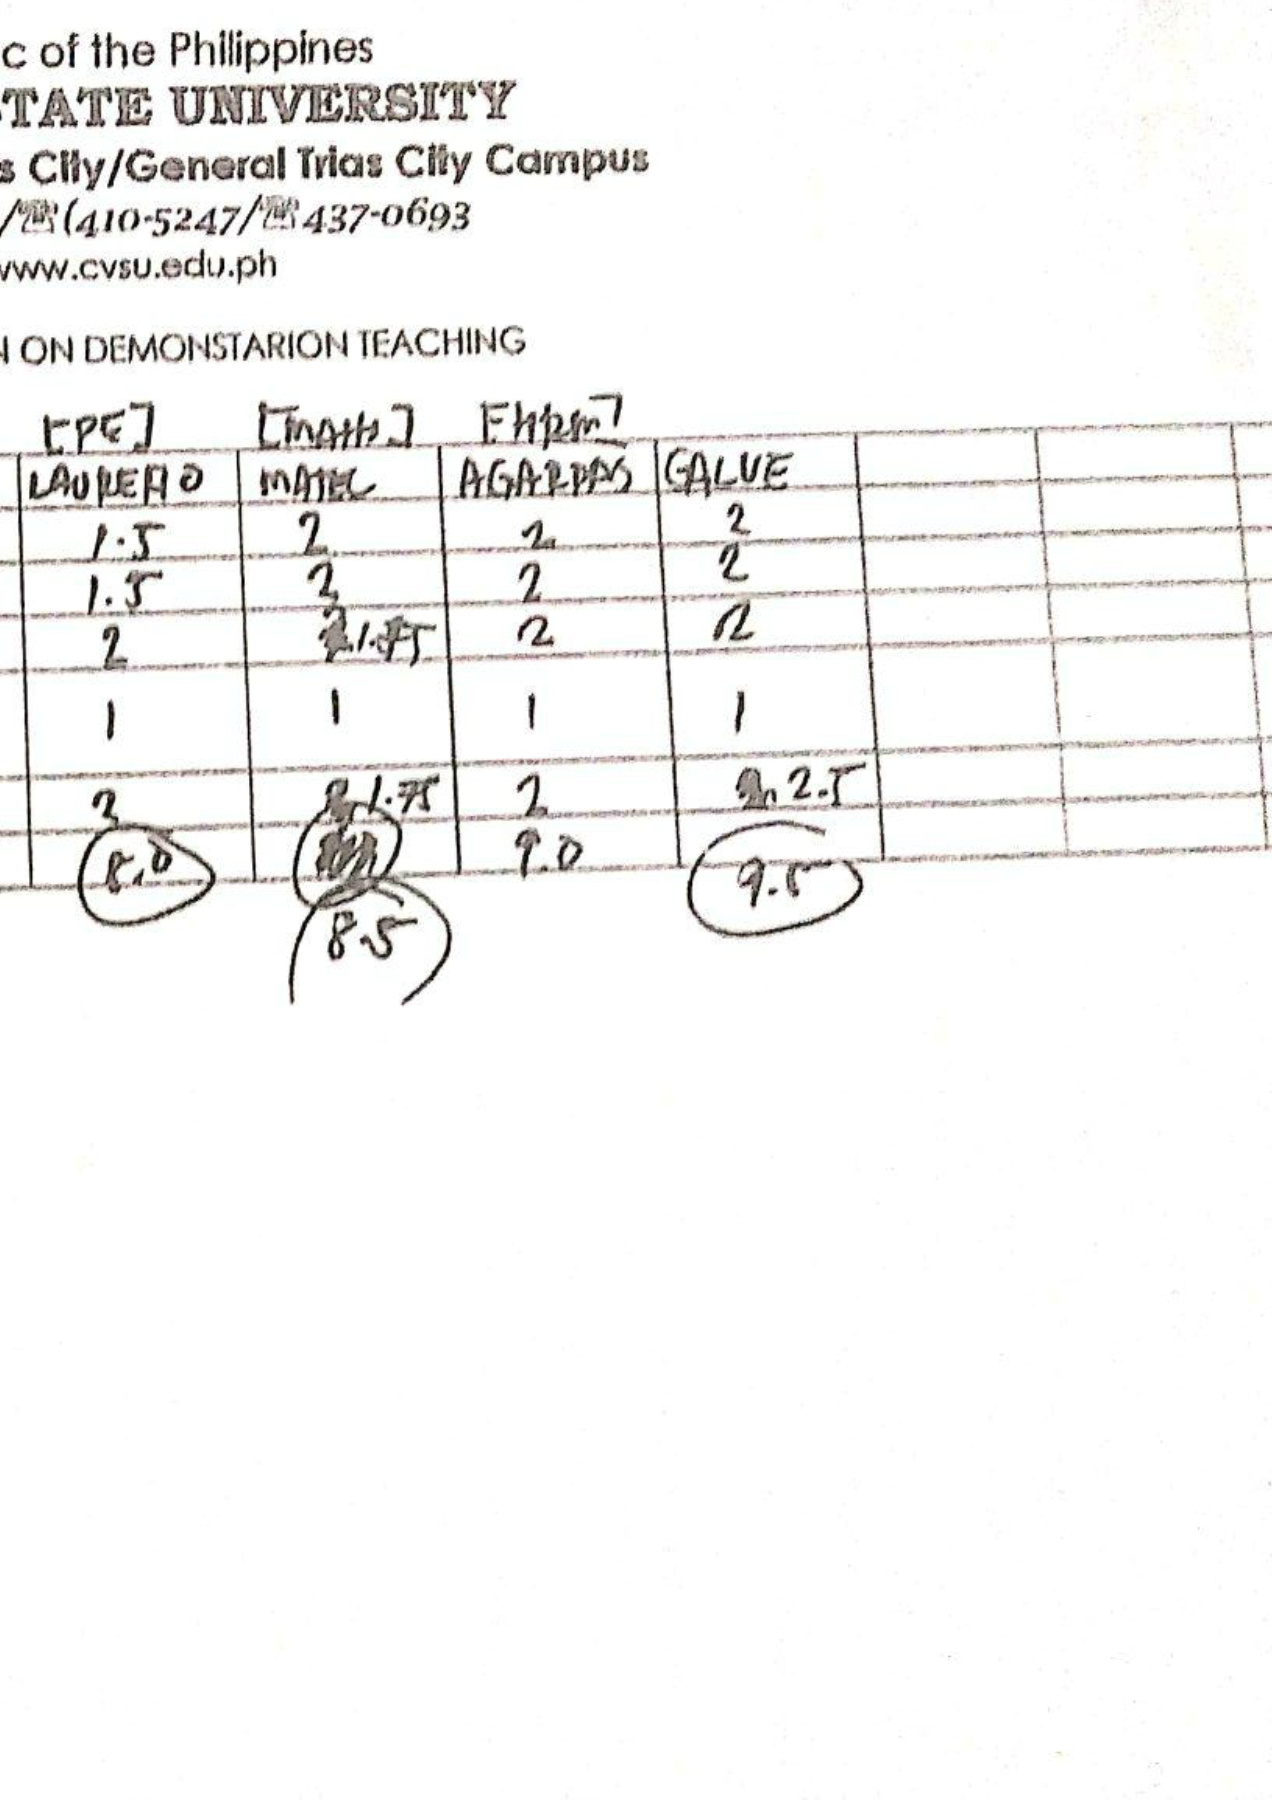 c of the Philippines
STATE UNIVERSITY
s City/General Trias City Campus
/☏(410-5247/☏437-0693
www.cvsu.edu.ph
N ON DEMONSTARION TEACHING
[PE] [MATH] [HRM]
MATEL AGARPAS GALVE
1.5 2 2 2
1.5 2 2 2
2 1.75 2 2
1 1 1 1
2 1.75 2 2.5
8.0 9.0 9.5
8.5